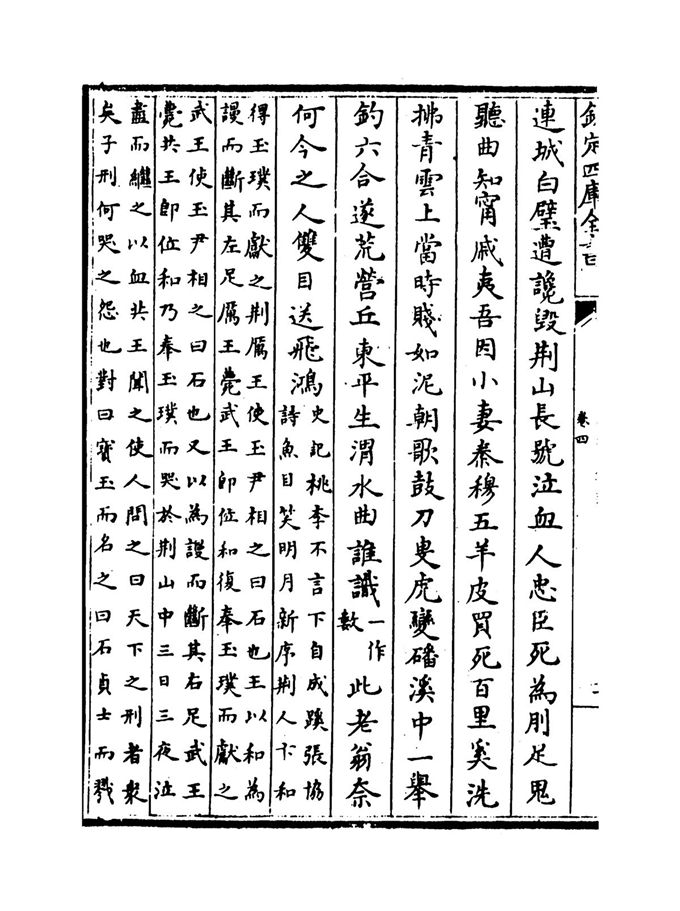 欽定四庫全書
卷四
連城白璧遭讒毀荆山長號泣血人忠臣死為刖足鬼
聽曲知甯戚夷吾因小妻秦穆五羊皮買死百里奚洗
拂青雲上當時賤如泥朝歌鼓刀叟虎變磻溪中一舉
釣六合遂荒營丘東平生渭水曲誰識一作數此老翁奈
何今之人雙目送飛鴻史記桃李不言下自成蹊張協
詩魚目笑明月新序荆人卞和
得玉璞而獻之荆厲王使玉尹相之曰石也王以和為
謾而斷其左足厲王薨武王即位和復奉玉璞而獻之
武王使玉尹相之曰石也又以為謾而斷其右足武王
薨共王即位和乃奉玉璞而哭於荆山中三日三夜泣
盡而繼之以血共王聞之使人問之曰天下之刑者衆
矣子刑何哭之怨也對曰寳玉而名之曰石貞士而戮